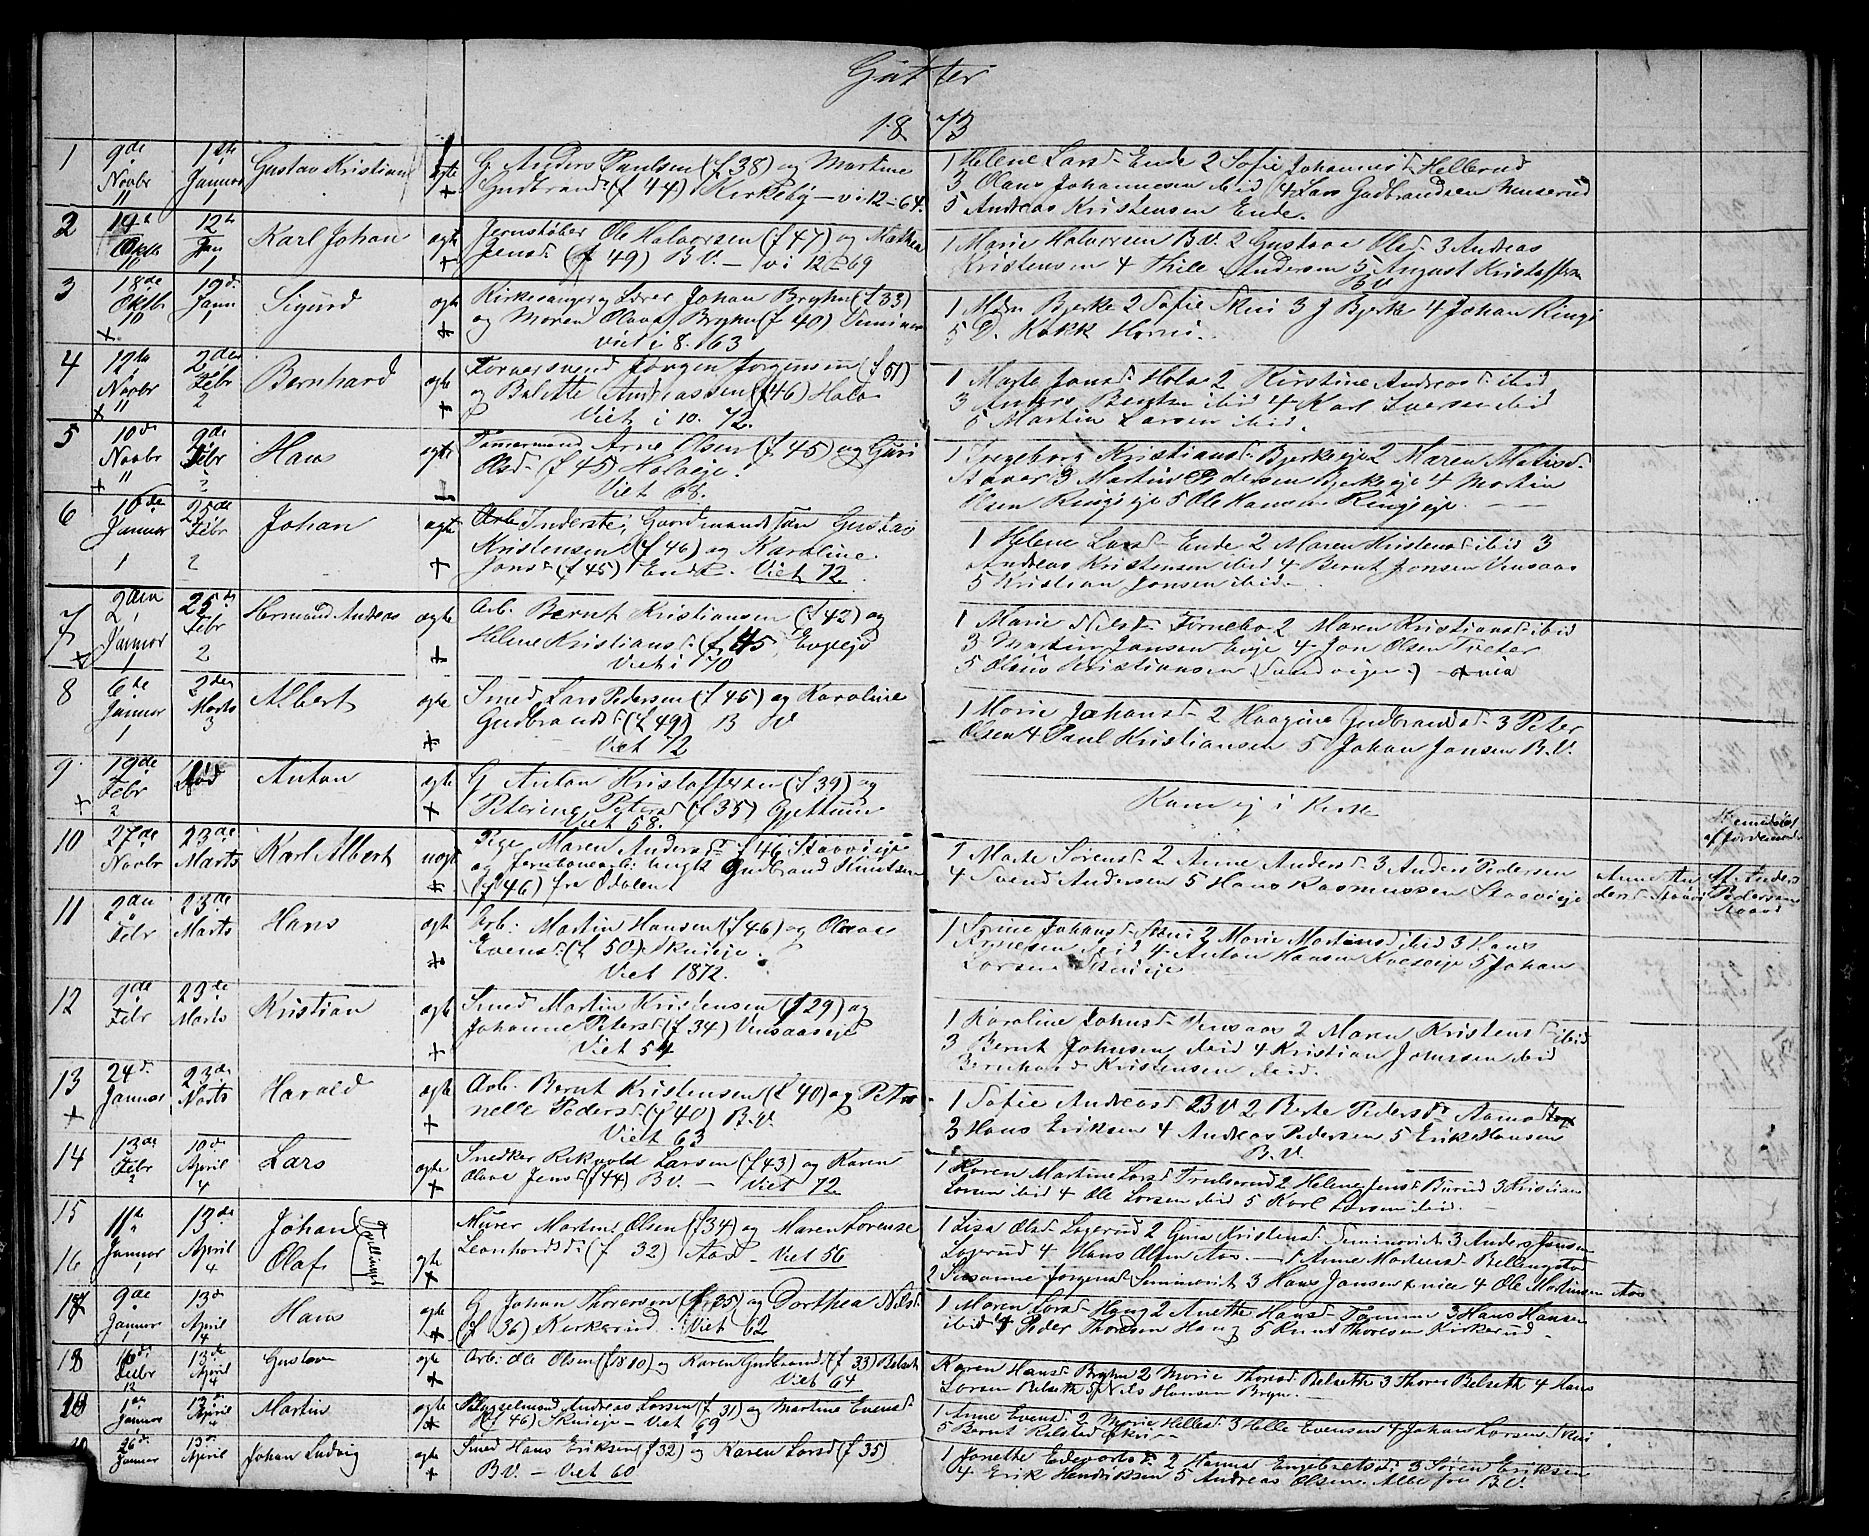 Gutter
1873
1 9de Novbr 11 1ste Januar 1 Gustav Kristian ægte + G. Anders Paulsen (f 38) og Martine
Gudbrandsd. (f 44) Kirkeby – vi 12–64.
1 Helene Larsd. Ende 2 Sofie Johannesd. Hellerud
3 Olaus Johannesen ibid 4 Lars Gudbrandsen Muserud
5 Andreas Kristensen Ende.
2 Oktb 10 12te Jan 1 Karl Johan ægte + Jernstøber Ole Halvorsen (f 47) og Mathea
Jensd. (f 49) B.V. – vi 12–69
1 Marie Halvorsen B.V. 2 Gustava Olsd. 3 Andreas
Kristensen 4 Thile Andersen 5 August Kristoffersen
B.V.
3 18de Oktbr 10 + 19de Janu 1 Sigurd ægte + Kirkesanger og Lærer Johan Bryhn (f 33)
og Maren Olava Bryhn (f 40) Seminar
viet i 8. 63
1 Maren Bjerke 2 Sofie Skui 3 J Bjerke 4 Johan Ringi
5 D. Kokk Horni.
4 12te Novbr 11 + 2den Febr 2 Bernhard ægte + Jørgen Jørgensen (f 51)
og Bulette Andreassen (f 46) Halv
Viet i 10. 72.
1 Marte Jonsd. Hole 2 Kirstine Andreasd. ibid
3 Anders Bentsen ibid 4 Karl Iversen ibid
5 Martin Larsen ibid.
5 10de Novbr 11 + 9de Febr 2 Hans ægte Tømmermand Arne Olsen (f 45) og Guri
Olsd. (f 45)
Viet 68.
1 Ingeborg Kristiansd. Bjerkeeje 2 Maren Matisd.
Staver 3 Martin Pedersen Bjerkeeje 4 Martin
Olsen Ringieje 5 Ole Hansen Ringieje.
6 16de Januar 1 25de Febr 2 Johan ægte + Inderste, Gaardmandssøn Gustav
Kristensen (f 46) og Karoline
Jonsd. (f 45) Ende. Viet 72.
1 Helene Larsd. Ende 2 Maren Kristensd. ibid 3
Andreas Kristensen ibid 4 Bernt Jonsen Vensaas
5 Kristian Jonsen ibid.
7 + 2den Januar 1 25de Febr 2 Hermand Andreas ægte + Arb. Bernt Kristiansen (f 42) og
Helene Kristiansd. (f 45) Evjeeje
Viet i 70
1 Marie Nilsd. Fornebo 2 Maren Kristiansd. ibid
3 Martin Jansen Evje 4 Jon Olsen Tveter
5 Hans Kristiansen (Sandvigen)
8 6te Januar 1 2den Marts 3 Albert ægte + Smed Lars Pedersen (f 46) og Karoline
Gudbrandsd. (f 49) B V
Viet 72
1 Marie Johansd. 2 Haagine Gudbrandsd. 3 Peter
Olsen 4 Paul Kristiansen 5 Johan Jansen B.V.
9 + 19de Febr 2 død Anton ægte + G Anton Kristoffersen (f 39) og
Peterine Petersd. (f 35) Gjettum
Viet 58.
Kom ej i Kirke
10 27de Novbr 23de Marts Karl Albert uægt + Pige Maren Andersd. f 46 Staaveje
og Jernbanearb. ungk Gudbrand Knutsen
(f 46) fra Odalen
1 Marte Sørensd. 2 Anne Andersd. 3 Anders Pedersen
4 Svend Andersen 5 Hans Rasmussen Staaveje
11 2den Febr 23de Marts Hans ægt + Arb. Martin Hansen (f 46) og Olava
Evensd. (f 50) Skuieje.
Viet 1872.
1 Sorine Johansd. Skui 2 Marie Martinsd. ibid 3 Hans
Arnesen ibid 4 Anton Hansen 5 Johan
Larsen Skuieje
12 9de Febr 23de Marts Kristian ægte + Smed Martin Kristensen (f 29) og
Johanne Petersd. (f 34) Vensaaseje
Viet 54
1 Karoline Johnsd. Vensaas 2 Maren Kristensd. ibid
3 Bernt Johnsen ibid 4 Kristian Johnsen ibid
Bernhard Kristensen ibid.
13 + 24de Januar 23de Marts Harald ægte + Arb. Bernt Kristensen (f 40) og Petro-
nelle Pedersd. (f 40) B.V.
Viet 63
1 Sofie Andreasd. B.V 2 Berte Pedersd.
3 Hans Eriksen 4 Andreas Pedersen 5 Erik Hansen
B.V.
14 13de Febr 2 10de April 4 Lars ægte + Snedker Larsen (f 43) og Karen
Olava Jensd. (f 44) B.V. – Viet 72
1 Karen Martine Larsd. Trulserud 2 Helene Jensd. Burud 3 Kristian
Larsen ibid 4 Ole Larsen ibid 5 Karl Larsen ibid.
15 11te Januar 1 13de April 4 Johan (Tvillinger) Murer Martin Olsen (f 34) og Maren Lorense
16 Olaf ægte + Leonhardsd. (f 32) Aas – Viet 56
1 Lisa Olsd. Løgerud 2 Gina Kristensd. Seminariet 3 Anders Jansen
Løgerud 4 Hans Olsen Aas – 1 Anne Martensd. Bellingstad
2 Susanne Jørgensd. Seminariet 3 Hans Jansen 4 Ole Martinsen Aas
17 9de Januar 1 13de April 4 Hans ægte + G Johan Thoresen (f 35) og Dorthea Nilsd.
(f 36) Kirkerud. Viet 62
1 Maren Larsd. Haug 2 Anette Hansd. 3 Hans Hansen
ibid 4 Peder Thoresen Haug 5 Knut Thoresen Kirkerud
18 16de Febr 13de April 4 Gustav ægte + Arb. Ole Olsen (f 1810) og Karen Gudbrandsd. (f 33) Belset
Viet 64
Karen Hansd. Bryhn 2 Marie Thoresd. Belsette 3 Thorer Belseth 4 Hans
Larsen Belseth 5 Nils Hansen Bryn.
1ste Januar 13de April 4 Martin ægte + Andreas Larsen (f 31) og Martine Evensd.
(f 46) Skuieje – Viet 69
1 Anne Evensd. 2 Marie Hellesd. 3 Helle Evensen 4 Johan Larsen Skui
5 Bernt Skui
26de Januar 13de April Johan Ludvig ægte + Smed Hans Eriksen (f 32) og Karen Larsd. (f 35)
B.V. – Viet 60
1 Jonette Edvartsd. 2 Hanna Engebretsd. 3 Søren Eriksen
4 Erik Hendriksen 5 Andreas Olsen. Alle fra B.V.